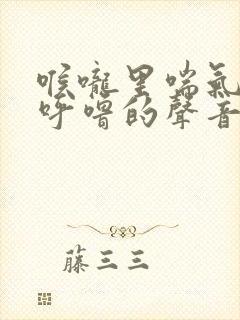 喉嚨里喘氣
呼嚕的聲音
藤三三